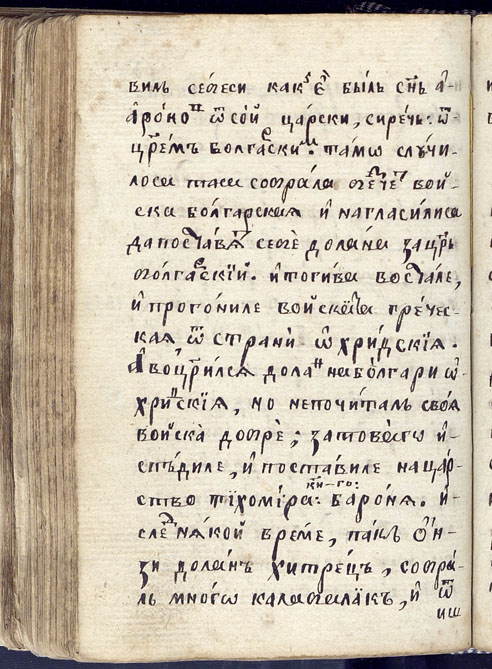 виль себеси какъ є҆ быль сн҃ь а҆-
а҆роно ѿ сой царски, сиречь: ѿ
цр҃емъ болгаски. тамѡ случи-
лоса таѧ собрала грече вой-
ска болгарскаѧ и҆ нагласилиса
да поставѧ себе долѧна за цр҃ь
болгаскїй. и҆ тогива восталe,
и҆ прогониле войската гречес-
кая, ѿ страни ѡ҆хридскїѧ.
А҆ воцр҃илсѧ долан на болгари ѡ҆-
хридскїѧ, но непочиталь своѧ
войска добре; затовагѡ и҆-
спѣдиле, и҆ поставиле на цар-
ство тїхомира: барона. и҆
кни-го:
сле някой време, пакъ ѻ҆н-
зи долань хитрець, собра-
ль многѡ калабалакъ, и҆ ѿ
иш